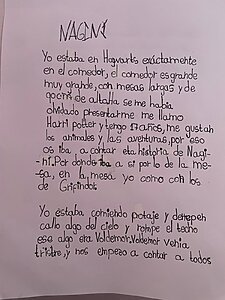 NAGINI
Yo estaba en Hogwarts exactamente
en el comedor, el comedor es grande
muy grande, con mesas largas y de
de altalla se me habia
olvidado presentarme me llamo
Harri Potter y tengo 17 años, me gustan
los animales y las aventuras, por eso
os iba a contar eta historia de Nagi-
ni. Por donde iba a si por lo de la me-
sa, en la mesa yo como con los
de Grifindos
Yo estaba comiendo potaje y derepeh
callo algo del cielo y rompe el techo
ese algo era Valdemor. Valdemor venia
tritre, y nos empezo a contar a todos